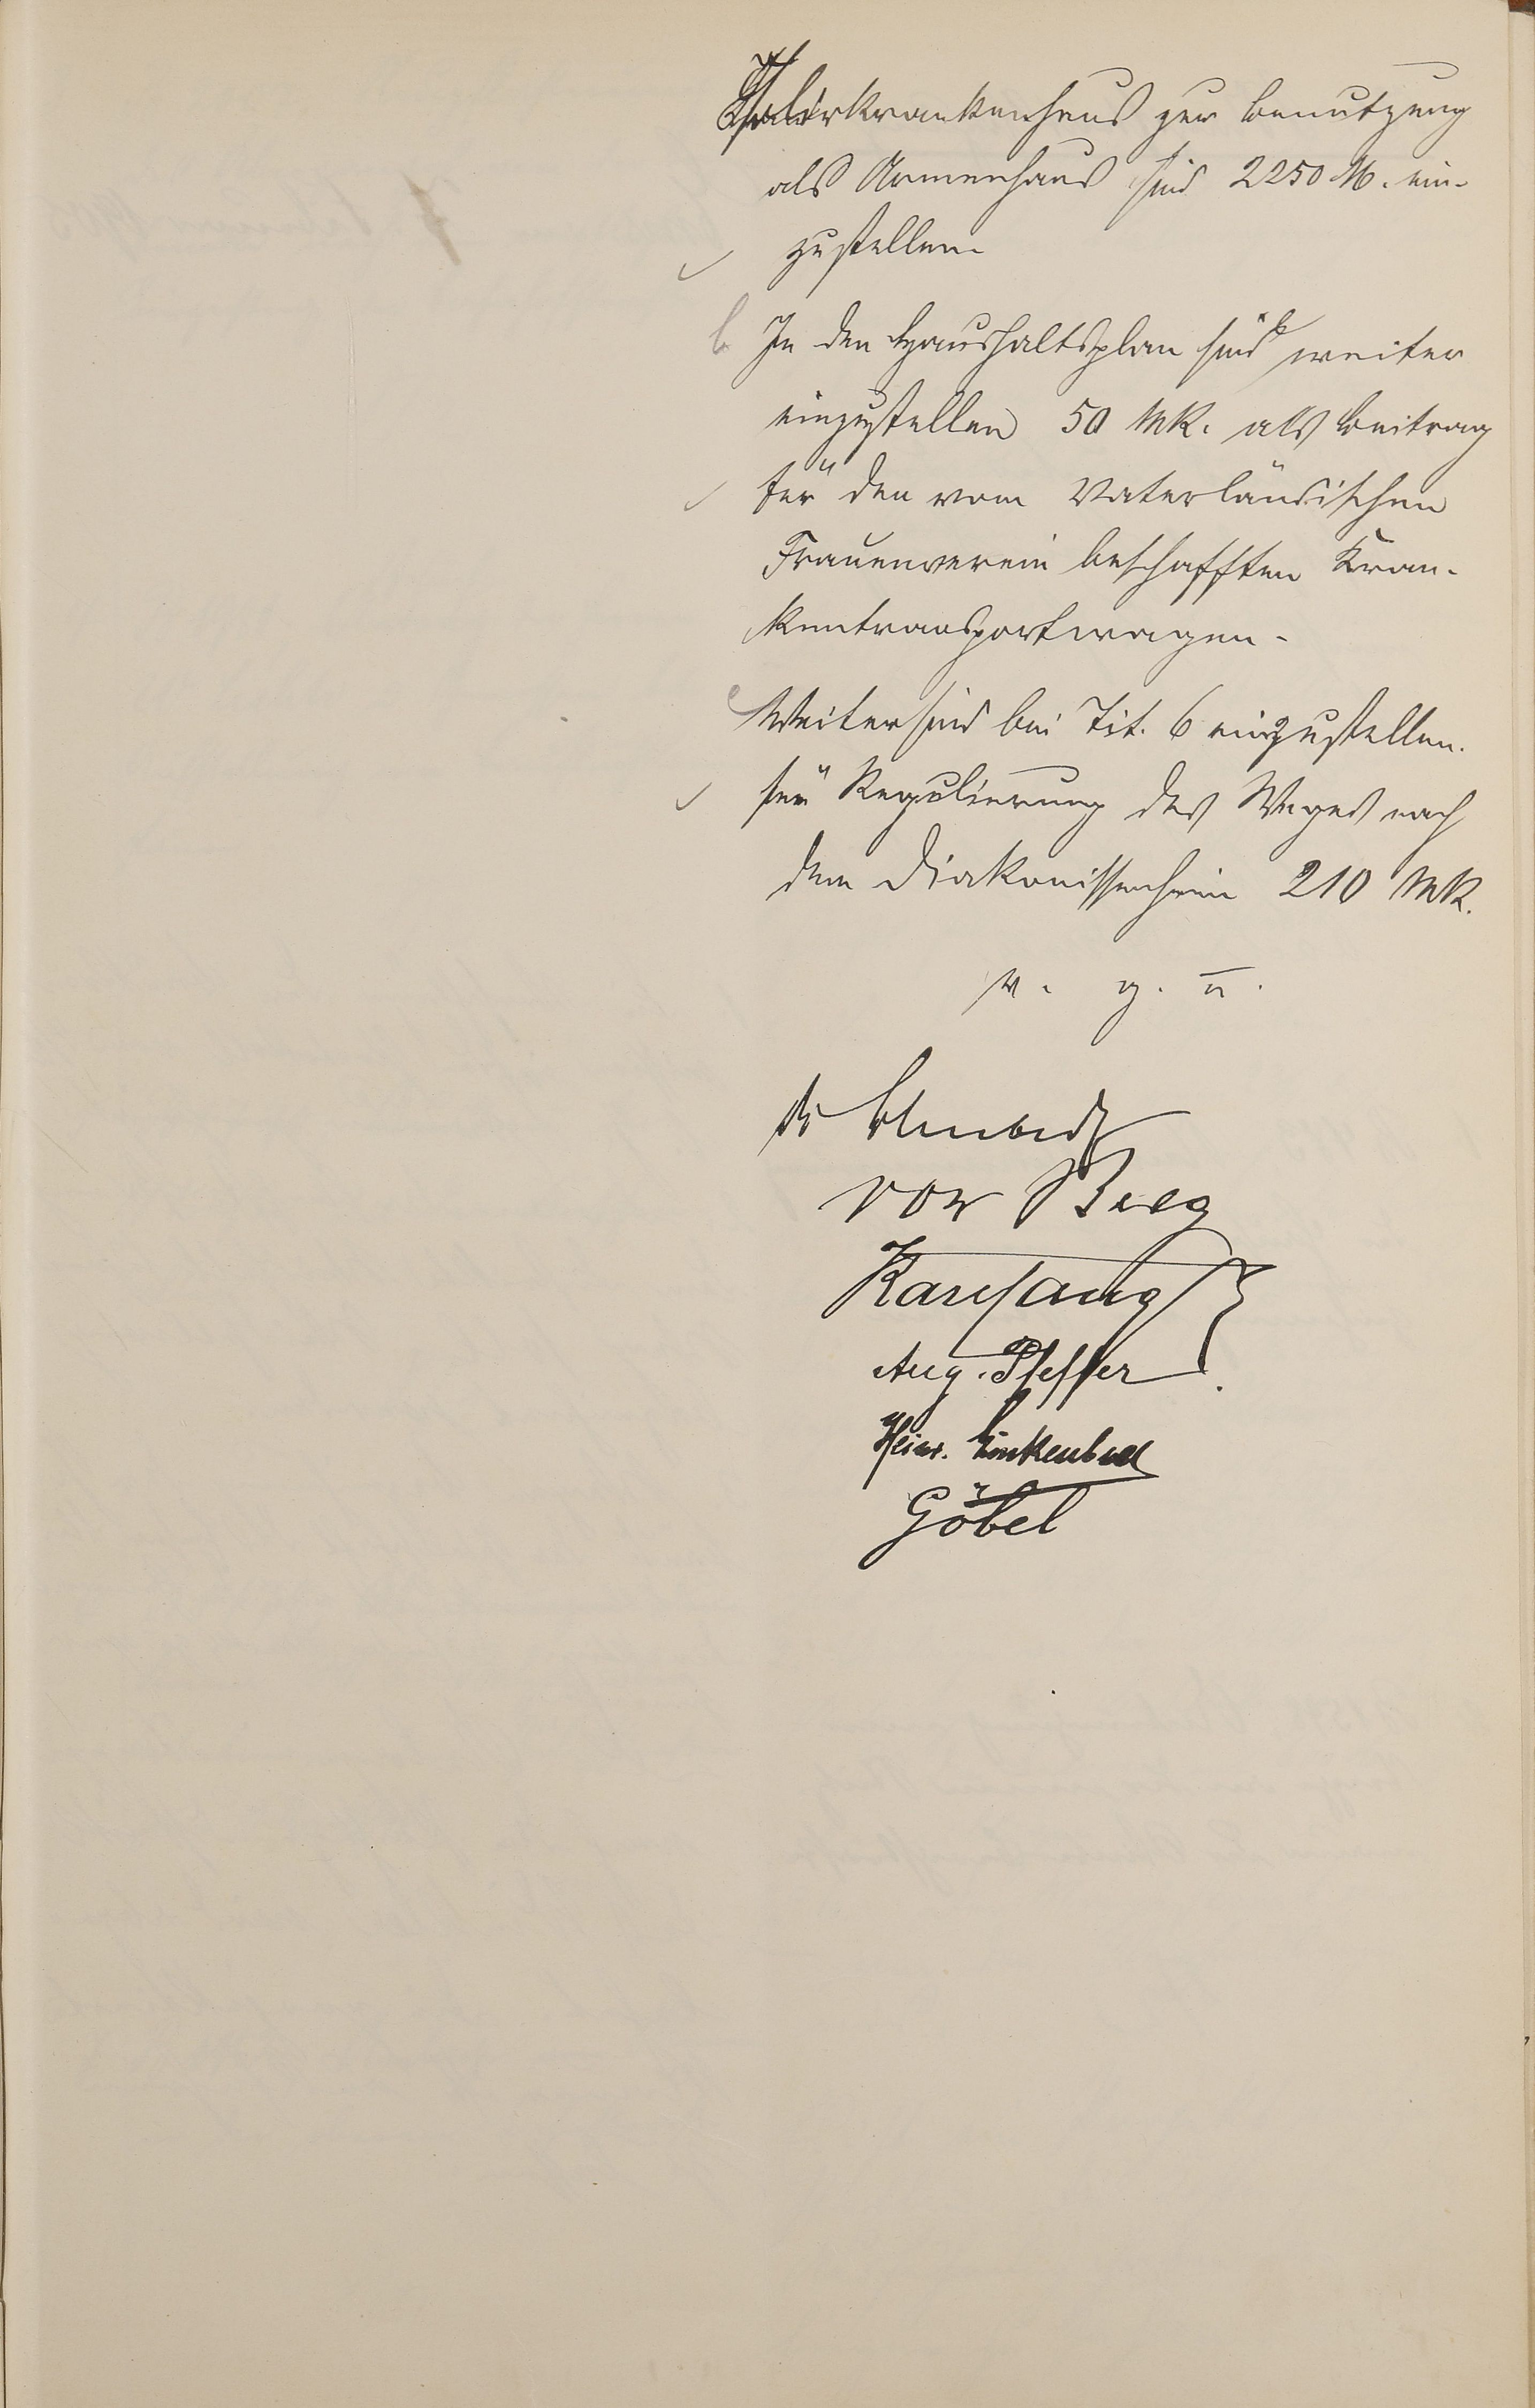 krankenhaus zur Benutzung
als Armenhaus sind 2250 M. ein-
zustellen.
b In den Haushaltsplan sind weiter
einzustellen 50 Mk. als Beitrag
für den vom Vaterländischen
Frauenverein beschafften Kran-
kentransportwagen.
c Weiter sind bei Tit. 6 einzustellen
für Regulierung des Weges nach
dem Diakonissenheim 210 Mk.
v. g. u.
von Berg
Aug. Pfeffer
Heinr.
Göbel